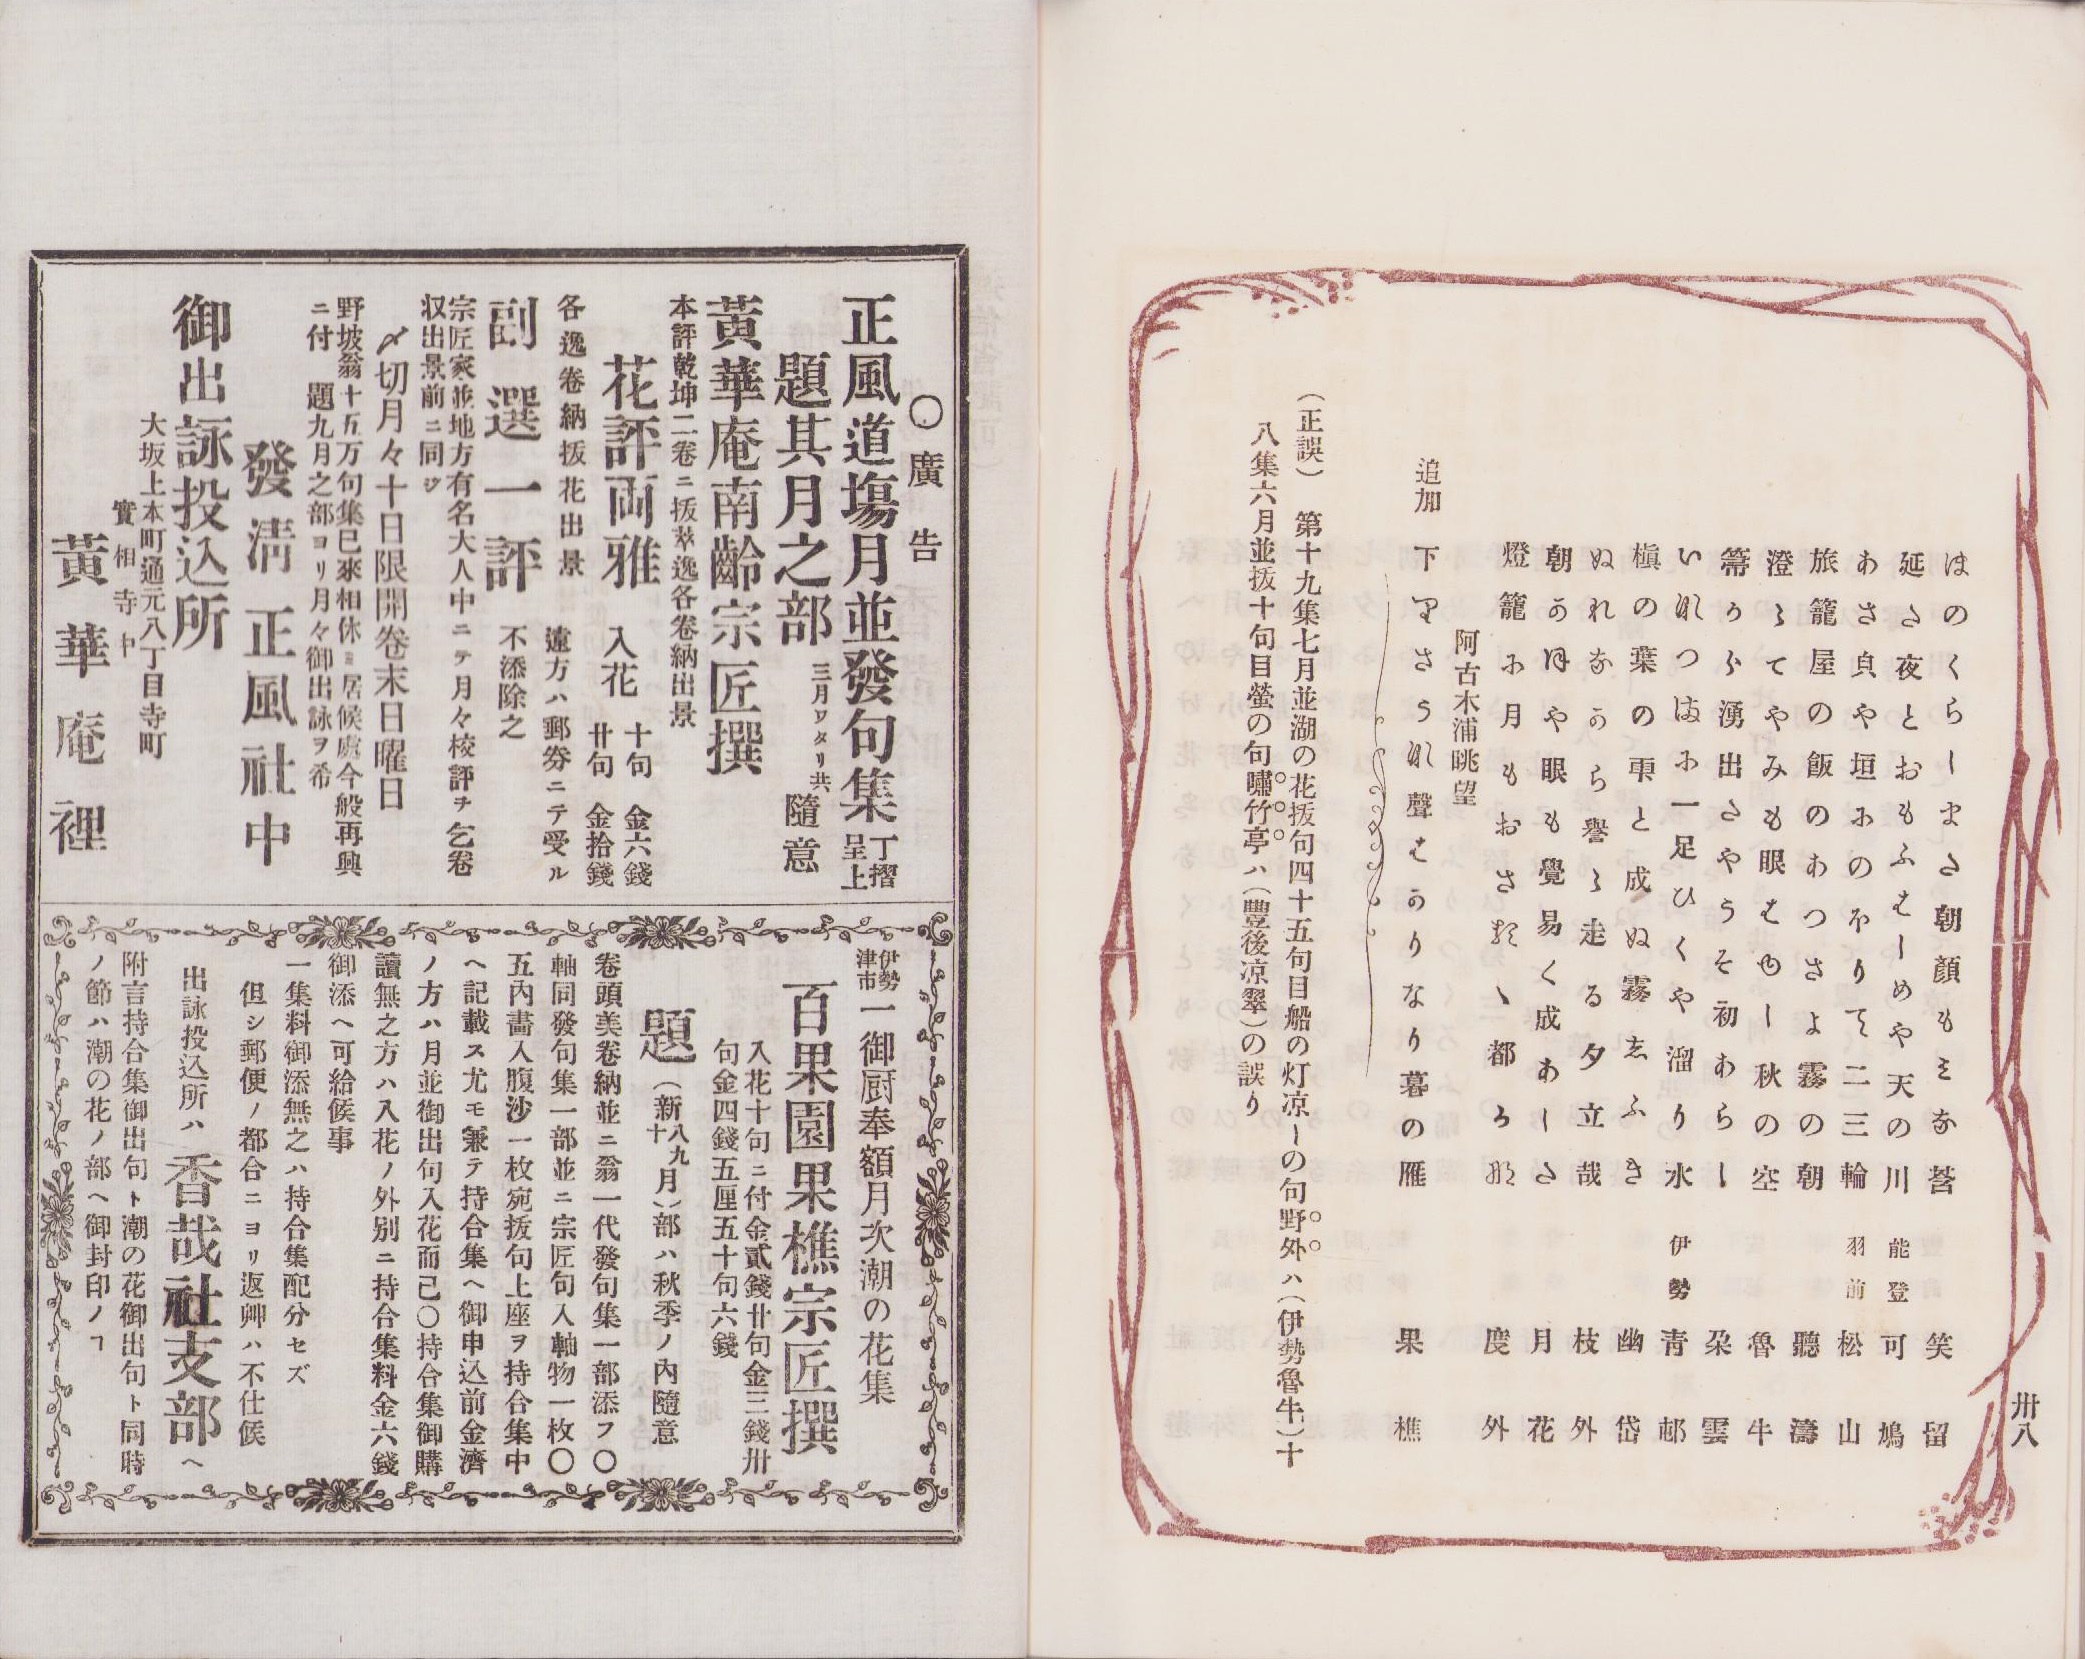 卅八
はのくらーまさ朝顔もミな莟 笑留
延さ夜とおもふはーめや天の川 能登 可鳩
あさ貞や垣ふのやりて二三輪 羽前 松山
旅籠屋の飯のあつさよ霧の朝 聽濤
澄〻てやみも眼はゆー秋の空 魯牛
箒から湧出さやうそ初あらー 朶雲
いれつはふ一足ひくや溜り水 伊勢 青邨
槇の葉の雫と成ぬ霧志ふき 幽岱
ぬれなから譽〻走る夕立哉 枝外
朝かほや眼も覺易く成あーさ 月花
燈籠ふ月もおさ〻都るな 度外
阿古木浦眺望
追加 下りさうれ聲はかりなり暮の雁 果樵
（正誤） 第十九集七月並湖の花拔句四十五句目船の灯凉ーの句野外ハ（伊勢魯牛）十
八集六月並拔十句目螢の句嘯竹亭ハ（豐後凉翠）の誤り
〇廣告
正風道塲月並發句集 丁摺呈上
題其月之部 三月ワタリ共 隨意
黃華庵南齡宗匠撰
本評乾坤二卷ニ拔萃逸各卷納出景
花評両雅 入花 十句 金六錢
廿句 金拾錢
各逸卷納拔花出景 遠方ハ郵劵ニテ受ル
副選一評 不添除之
宗匠家並地方有名大人中ニテ月々棱評ヲ乞卷
収出景前ニ同ジ
〆切月々十日限開卷末日曜日
野坡翁十五万句集已來相休ミ居候處今般再興
ニ付 題九月之部ヨリ月々御出詠ヲ希
發淸 正風社中
御出詠投込所
大坂上本町通元八丁目寺町
實相寺中
黃華庵裡
伊勢津市 一御厨奉額月次潮の花集
百果園果樵宗匠撰
入花十句ニ付金貳錢廿句金三錢卅
句金四錢五厘五十句六錢
題（新八九十月）部ハ秋季ノ內隨意
卷頭美卷納並ニ翁一代發句集一部添フ〇
軸同發句集一部並ニ宗匠句入軸物一枚〇
五內畵入腹沙一枚宛拔句上座ヲ持合集中
ヘ記載ス尤モ兼テ持合集ヘ御申込前金濟
ノ方ハ月並御出句入花而已〇持合集御購
讀無之方ハ入花ノ外別ニ持合集料金六錢
御添ヘ可給候事
一集料御添無之ハ持合集配分セズ
但シ郵便ノ都合ニヨリ返艸ハ不仕候
出詠投込所ハ 香哉社支部ヘ
附言持合集御出句ト潮の花御出句ト同時
ノ節ハ潮の花ノ部ヘ御封印ノヿ